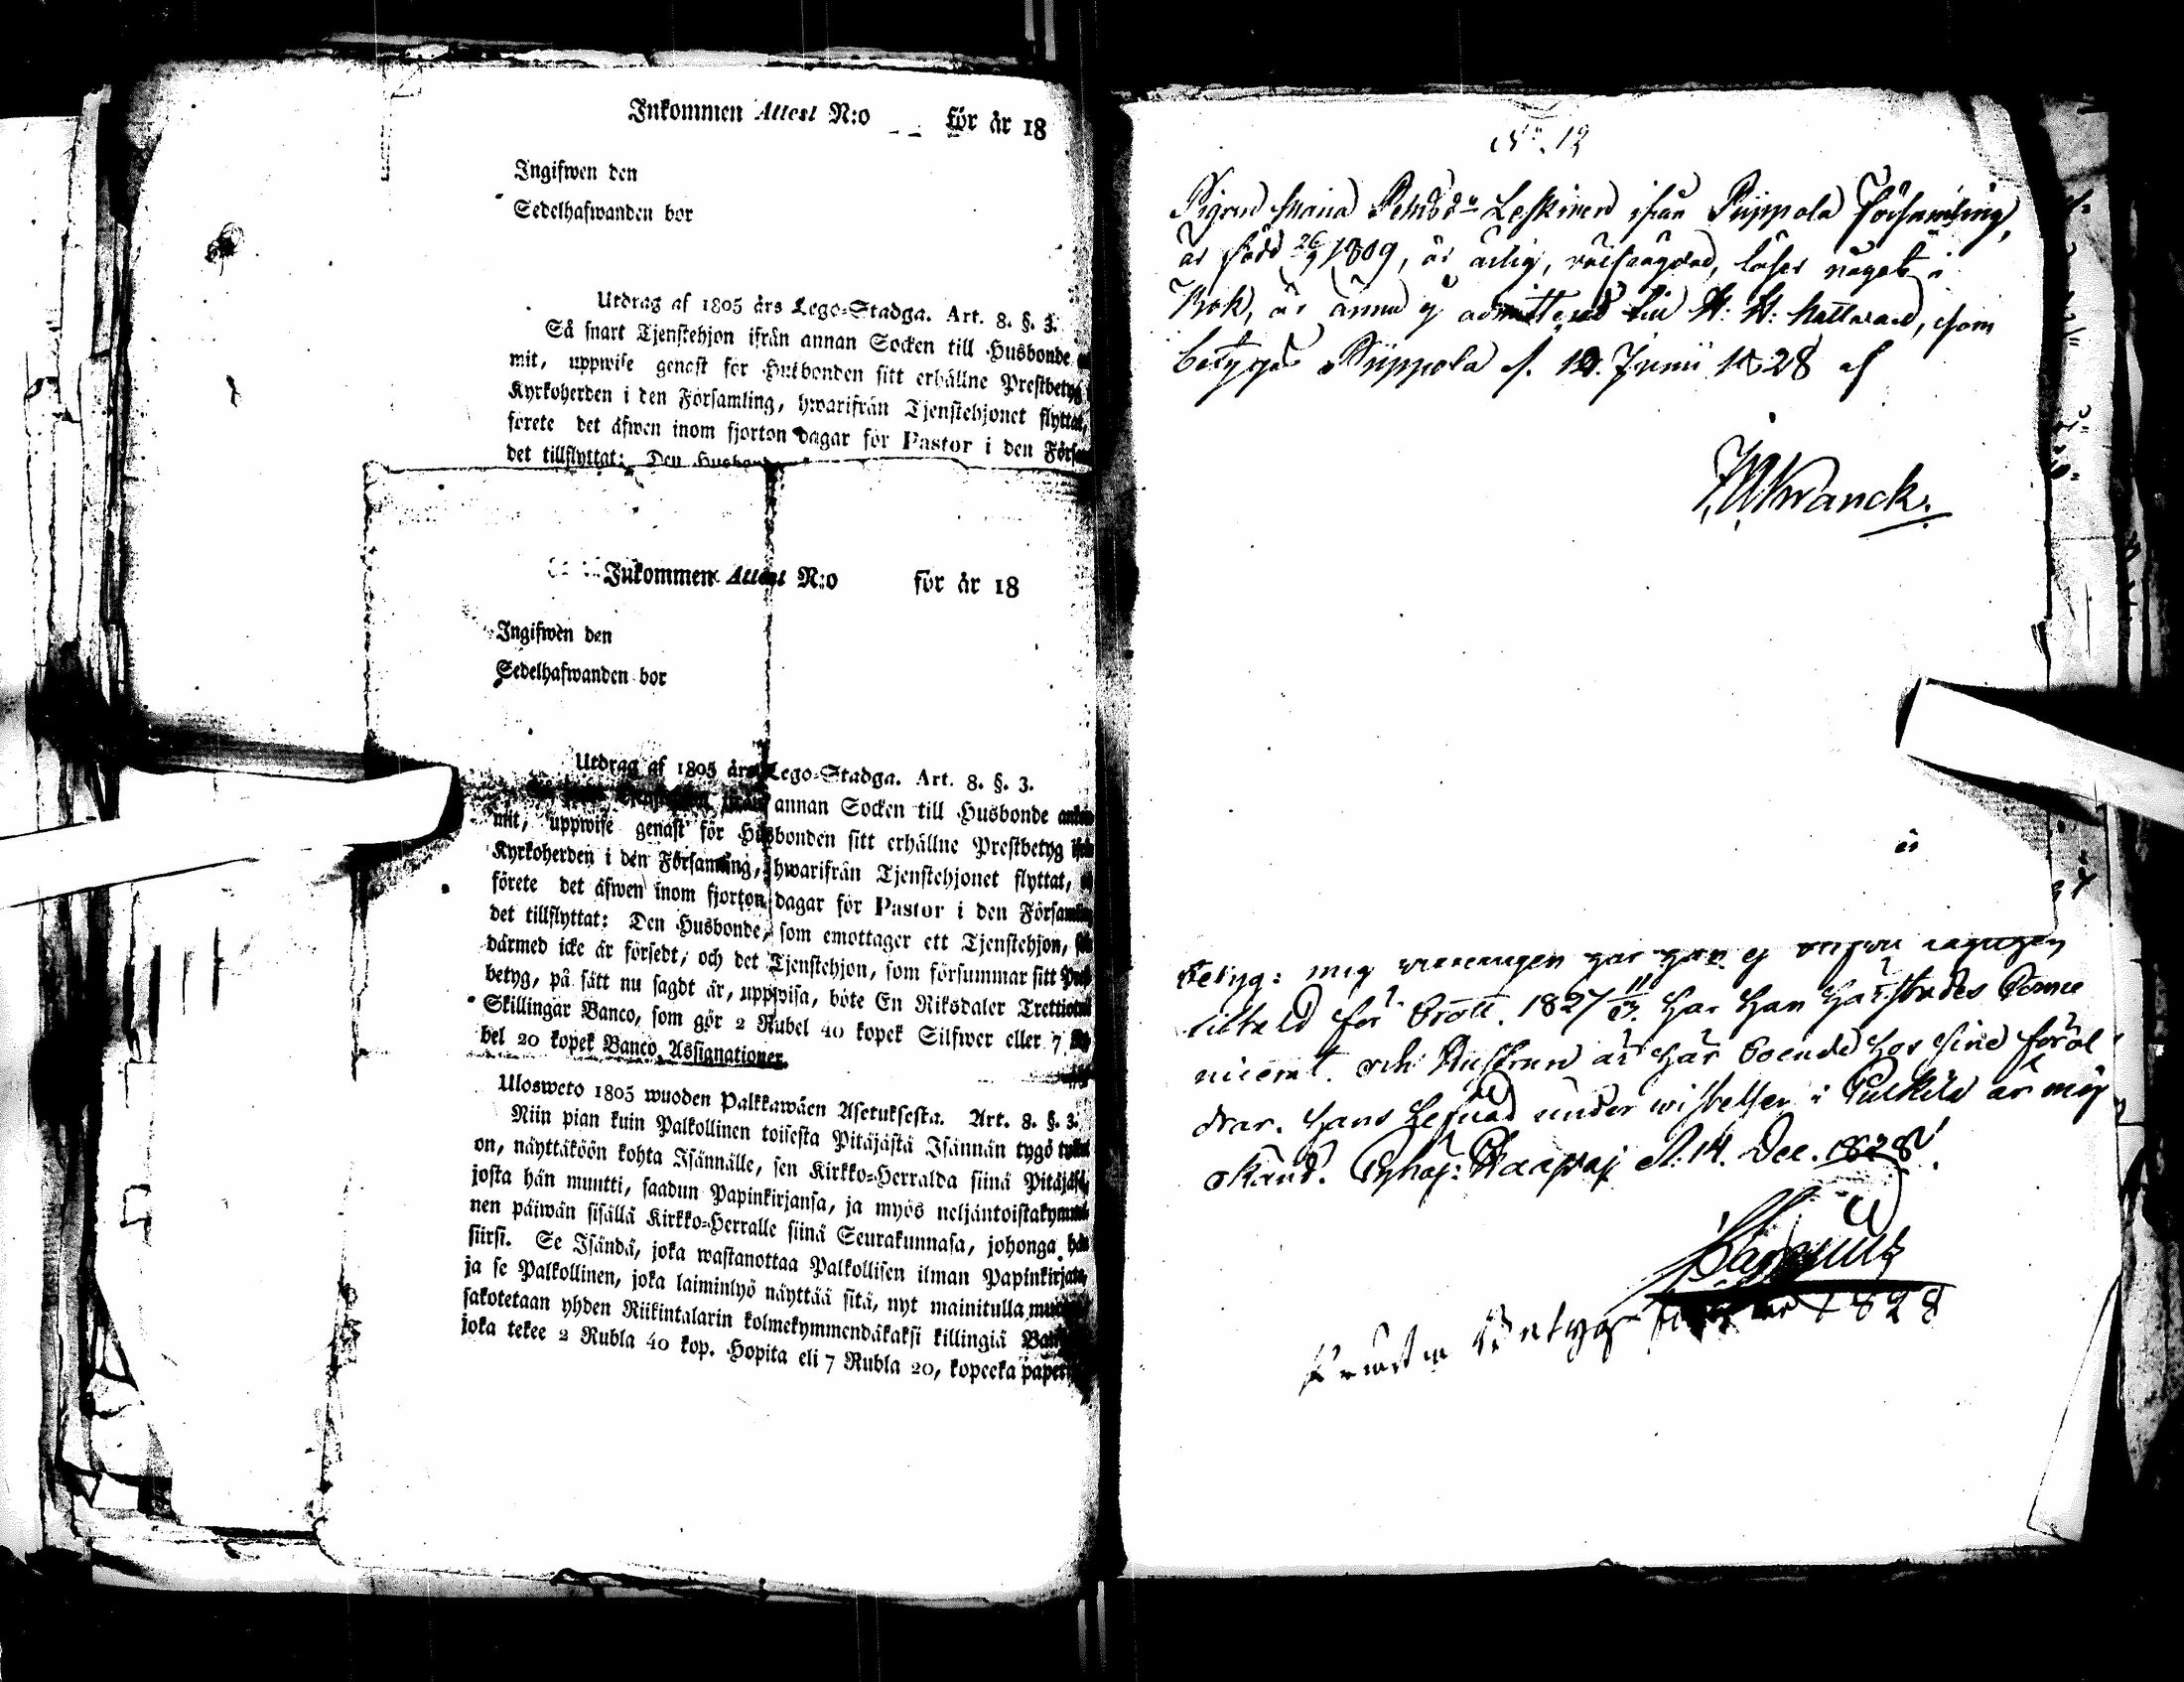 Inkommen Attest N:o för år 18
Ingifwen den
Sedelhafwanden bor
Utdrag af 1805 års Lego-Stadga. Art. 8. §. 3.
Så snart Tjenstehjon ifrån annan Socken till Husbonde
mit, uppwise genast för Husbonden sitt erhållne Prestbetyg
Kyrkoherden i den Församling, hwarifrån Tjenstehjonet flyttat,
förete det äfwen inom fjorton dagar för Pastor i den Förs
det tillflyttat: Den Husbonde
Inkommen Attest N:o för år 18
Ingifwen den
Sedelhafwanden bor
Utdrag af 1805 års Lego-Stadga. Art. 8. §. 3.
annan Socken till Husbonde
mit, uppwise genast för Husbonden sitt erhållne Prestbetyg
Kyrkoherden i den Församling, hwarifrån Tjenstehjonet flyttat,
förete det äfwen inom fjorton dagar för Pastor i den Församlin
det tillflyttat: Den Husbonde, som emottager ett Tjenstehjon,
därmed icke är försedt, och det Tjenstehjon, som försummar sitt
betyg, på sätt nu sagdt är, uppwisa, böte En Riksdaler Trettiotwå
Skillingar Banco, som gör 2 Rubel 40 kopek Silfwer eller 7
bel 20 kopek Banco Assignationer.
Ulosweto 1805 wuoden Palkkawäen Asetuksesta. Art. 8. §. 3.
Niin pian kuin Palkollinen toisesta Pitäjästä Isännän tygö
on, näyttäköön kohta Isännälle, sen Kirkko-Herralda siinä Pitäjäs
josta hän muutti, saadun Papinkirjansa, ja myös neljäntoistakymme
nen päiwän sisällä Kirkko-Herralle siinä Seurakunnasa, johonga hän
siirsi. Se Isändä, joka wastanottaa Palkollisen ilman Papinkirjata,
ja se Palkollinen, joka laiminlyö näyttää sitä, nyt mainitulla
sakotetaan yhden Riikintalarin kolmekymmendäkaksi killingiä
joka tekee 2 Rubla 40 kop. Hopita eli 7 Rubla 20, kopeeka
No. 12
Pigan Maria Petersdr Leskinen ifrån Piippola Församling,
är född 26/9 1809, är ärlig, läser något i
Bok, är ännu ej admitterad till H: H: Nattvard, som
betygas Piippola d. Junii 1828 af
Wranck.
är
Betyg: mig har han ej
för Brott. 1827 har han härstädes
och Hustrun är här boende hos sine föräl
drar. Hans under wistelsen i Pulkila är mig
okänd. Pyhäj: Haapaj d. 14. Dec. 1828
1828